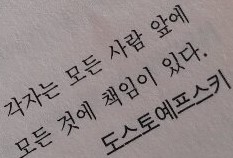 각자는 모든 사람 앞에
모든 것에 책임이 있다.
도스토예프스키